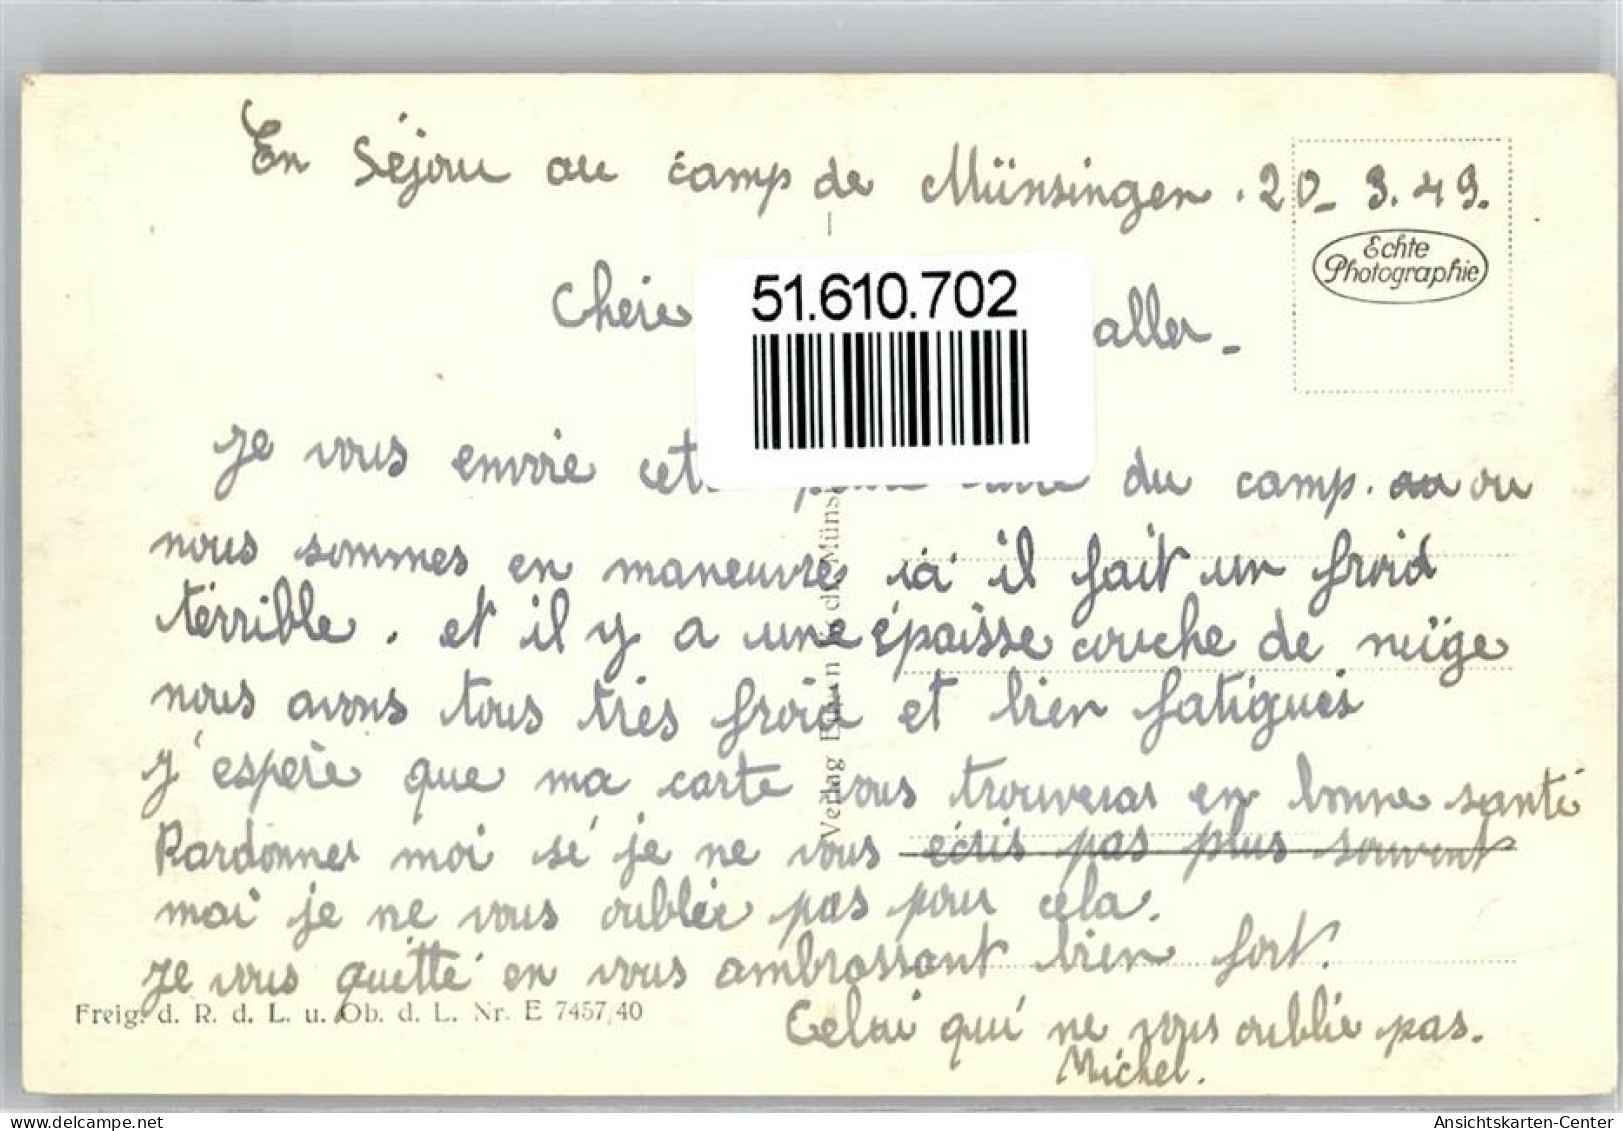 En Séjour au camp de Münsingen . 20_ 3. 49.
Echte
Photographie
51.610.702
Chere
aller_
Je vous envoie du camp. ou
nous sommes en maneuvre ici il fait un froid
térrible . et il y a une épaisse couche de neige
nous avons tous très froid et bien fatigués
J'espère que ma carte vous trouveras en bonne santé
Pardonner moi si je ne vous écris pas plus souvent
mai je ne vous oublie pas pour cela.
Je vous quitte en vous ambrassant bien fort.
Freig. d. R. d. L. u. Ob. d. L. Nr. E 7457/40
Celui qui ne vous oublie pas.
Michel.
Verlag
Ansichtskarten-Center
www.delcampe.net